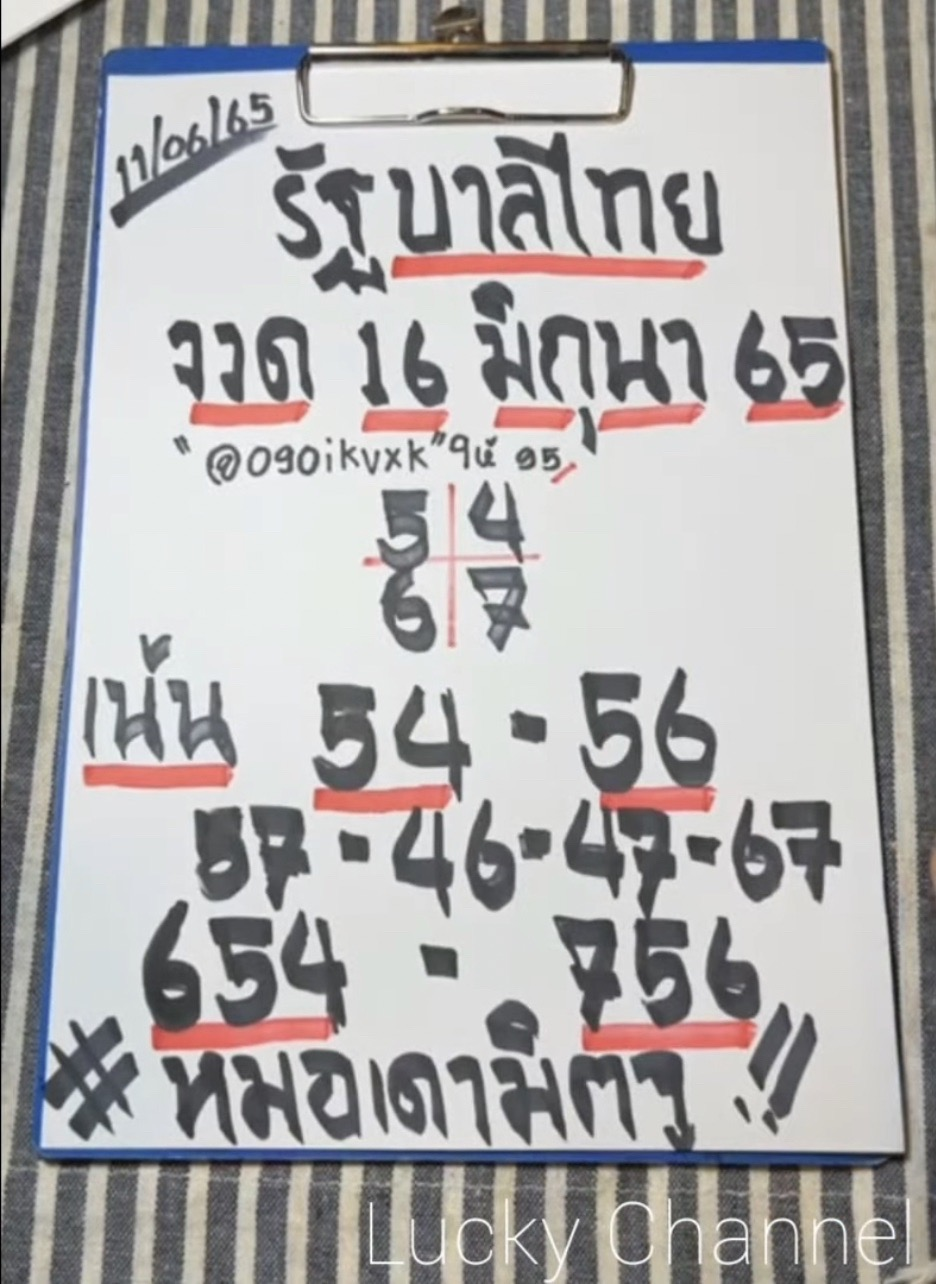 11/06/65
รัฐบาลไทย
งวด 16 มิถุนา 65
"@090ikvxk"
5 4
6 7
เน้น 54 - 56
57 - 46 - 47 - 67
654 - 756
#หมอเดามิตรๅ !!
Lucky Channel